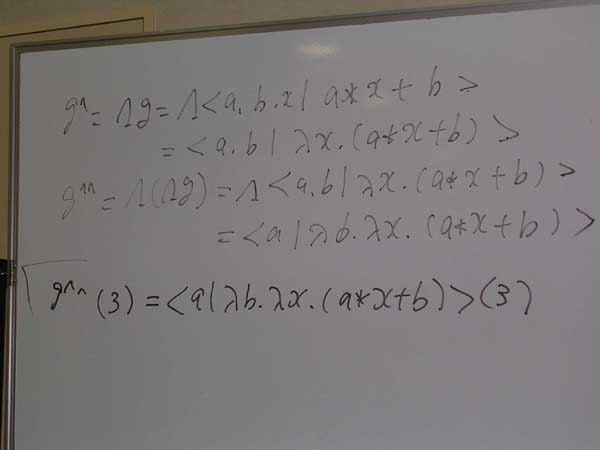 g^ = Λg = Λ<a, b, x | a*x + b>
= <a, b | λx. (a*x+b)>
g^^ = Λ(Λg) = Λ<a, b | λx. (a*x+b)>
= <a | λb. λx. (a*x+b)>
g^^ (3) = <a | λb. λx. (a*x+b)>(3)